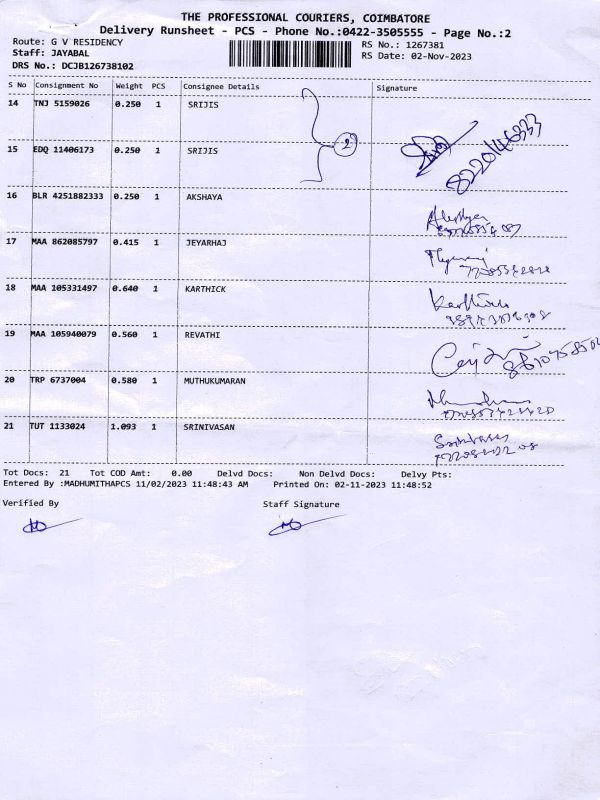 THE PROFESSIONAL COURIERS, COIMBATORE
Delivery Runsheet - PCS - Phone No.:0422-3505555 - Page No.:2
Route: G V RESIDENCY
RS No.: 1267381
Staff: JAYABAL
RS Date: 02-Nov-2023
DRS No.: DCJB126738102
S No Consignment No Weight PCS Consignee Details Signature
14 TNJ 5159026 0.250 1 SRIJIS
2
8220146333
15 EDQ 11406173 0.250 1 SRIJIS
16 BLR 4251882333 0.250 1 AKSHAYA
17 MAA 862085797 0.415 1 JEYARHAJ
18 MAA 105331497 0.640 1 KARTHICK
Karthick
19 MAA 105940079 0.560 1 REVATHI
20 TRP 6737004 0.580 1 MUTHUKUMARAN
21 TUT 1133024 1.093 1 SRINIVASAN
Srinivasan
Tot Docs: 21 Tot COD Amt: 0.00 Delvd Docs: Non Delvd Docs: Delvy Pts:
Entered By :MADHUMITHAPCS 11/02/2023 11:48:43 AM Printed On: 02-11-2023 11:48:52
Verified By Staff Signature